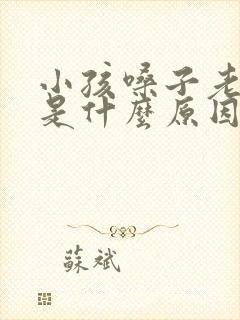 小孩嗓子老
是什麼原因
蘇斌